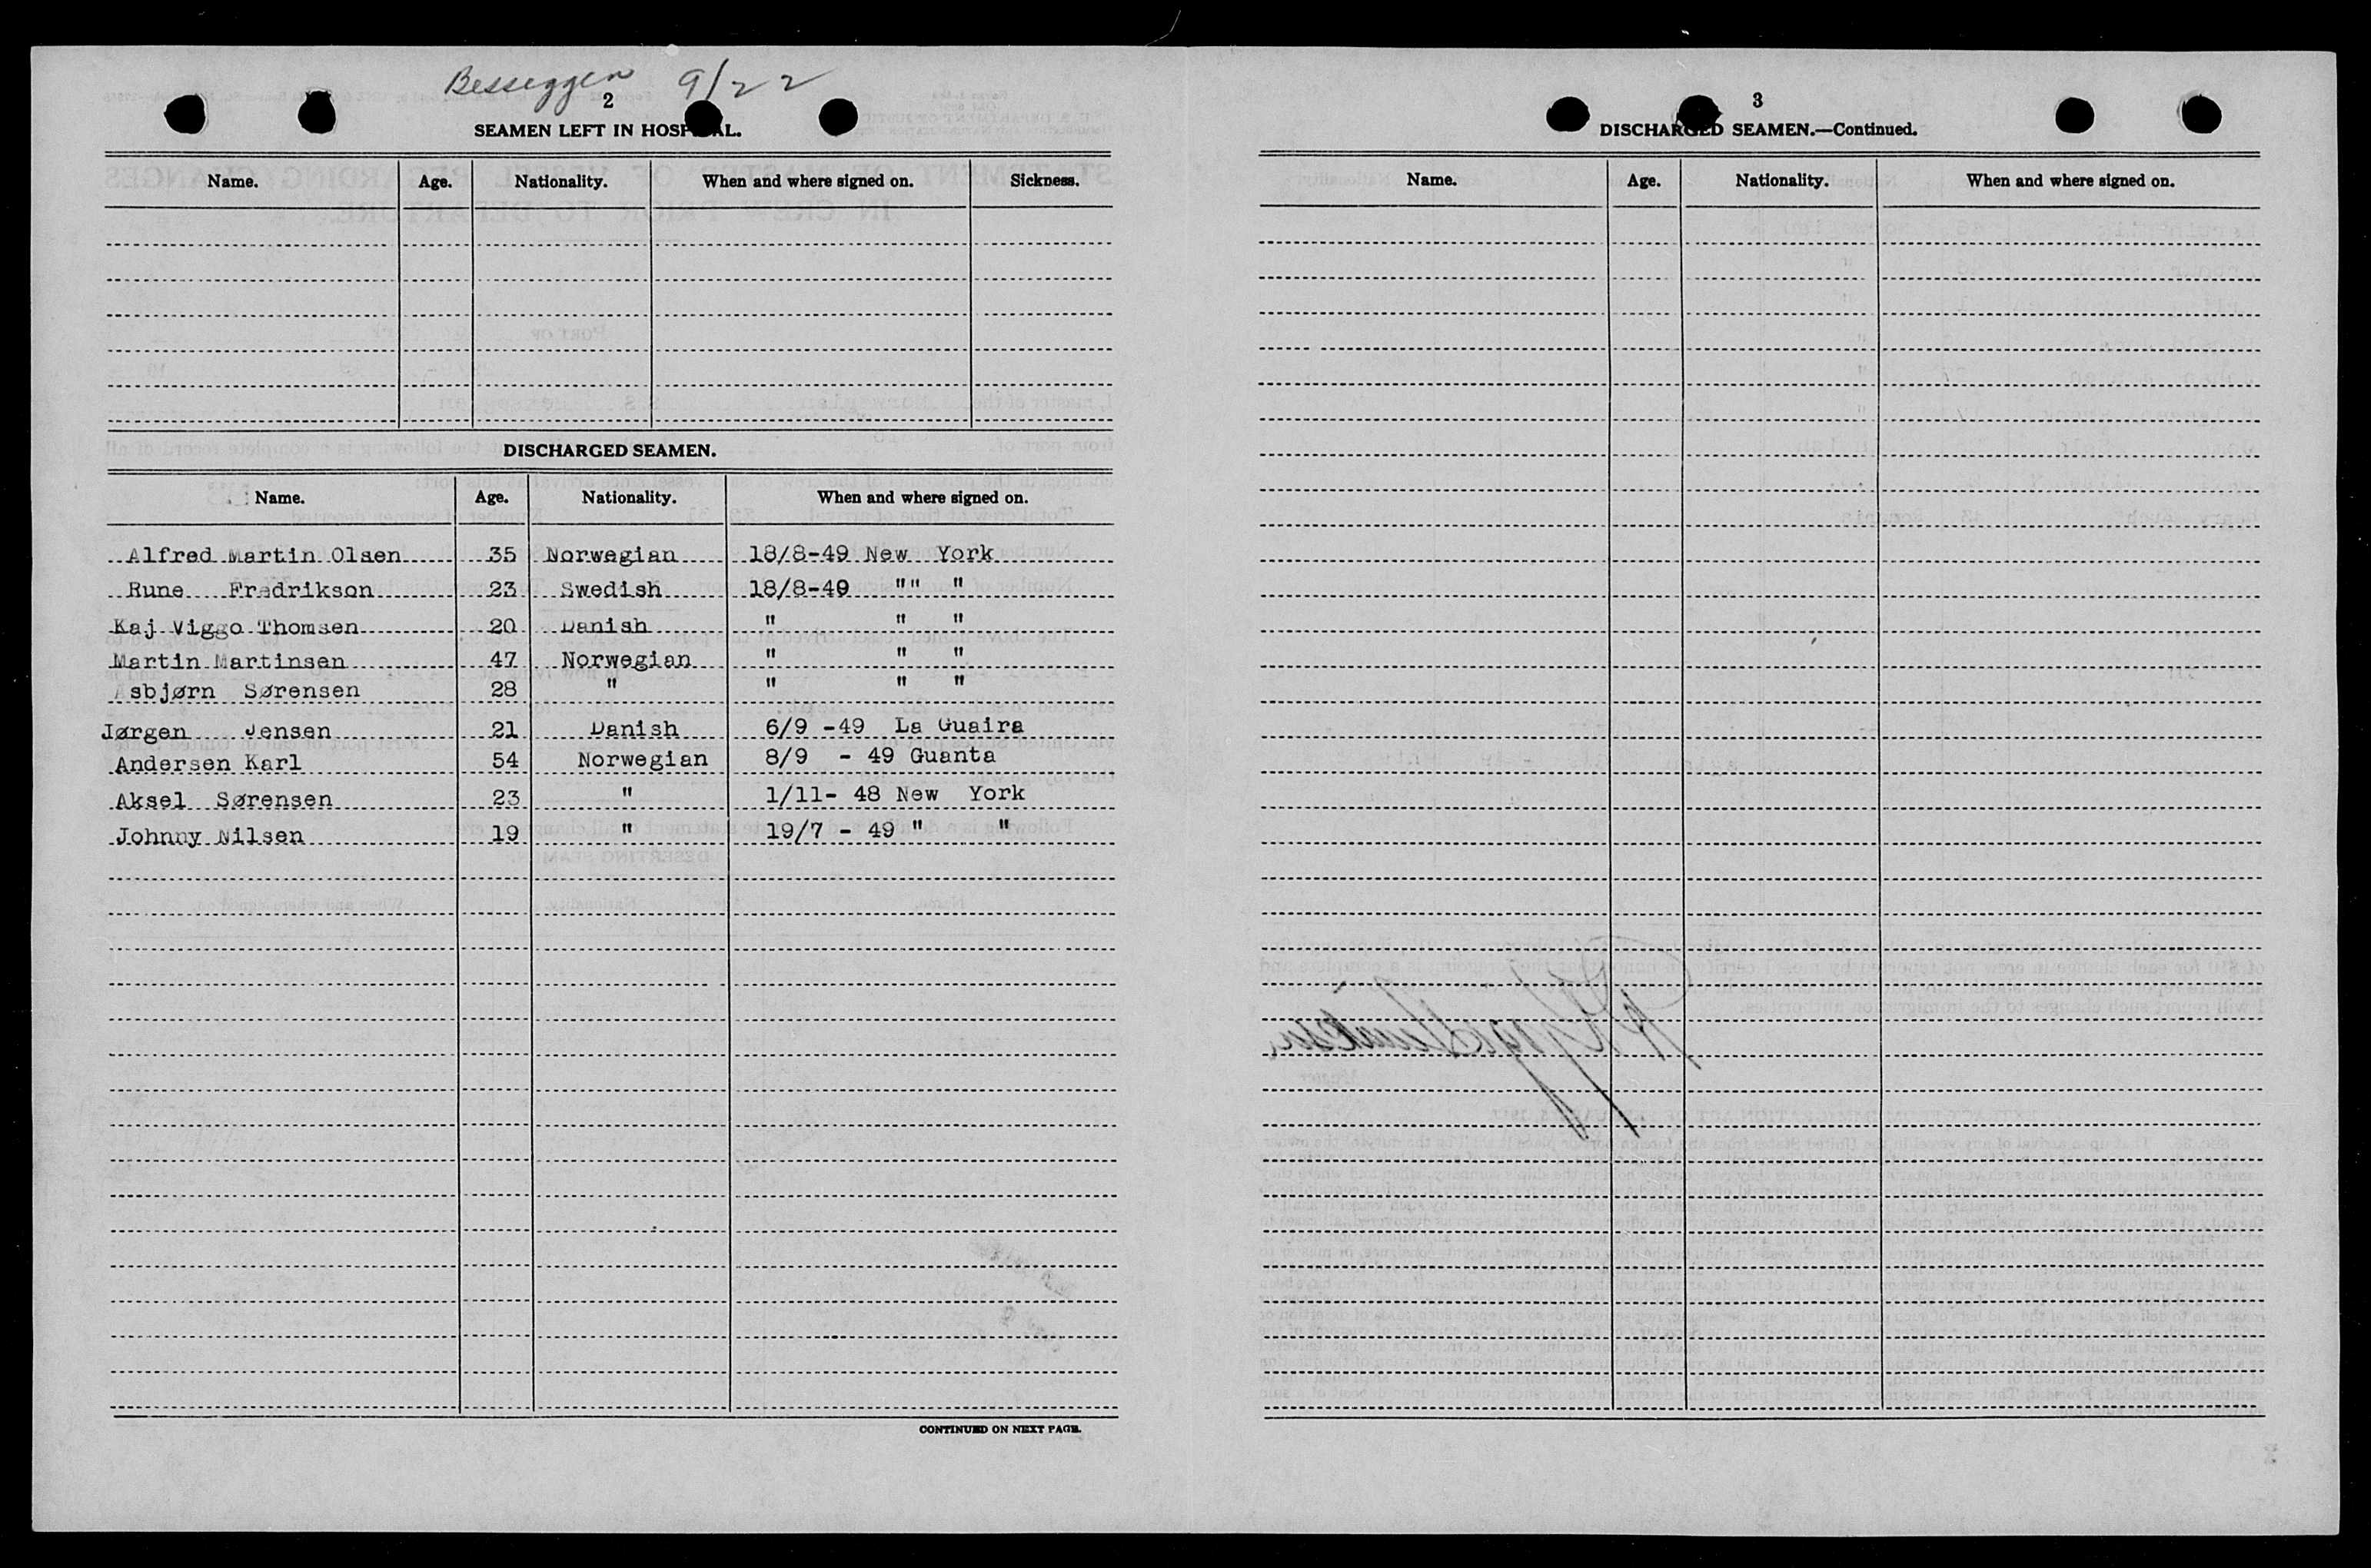 Besseggen 9/22
2
SEAMEN LEFT IN HOSPITAL.
Name. Age. Nationality. When and where signed on. Sickness.
DISCHARGED SEAMEN.
Name. Age. Nationality. When and where signed on.
Alfred Martin Olsen 35 Norwegian 18/8-49 New York
Rune Fredrikson 23 Swedish 18/8-49 "" "
Kaj Viggo Thomsen 20 Danish " " "
Martin Martinsen 47 Norwegian " " "
Asbjørn Sørensen 28 " " " "
Jørgen Jensen 21 Danish 6/9 -49 La Guaira
Andersen Karl 54 Norwegian 8/9 - 49 Guanta
Aksel Sørensen 23 " 1/11- 48 New York
Johnny Nilsen 19 " 19/7 - 49 " "
CONTINUED ON NEXT PAGE.
3
DISCHARGED SEAMEN.—Continued.
Name. Age. Nationality. When and where signed on.